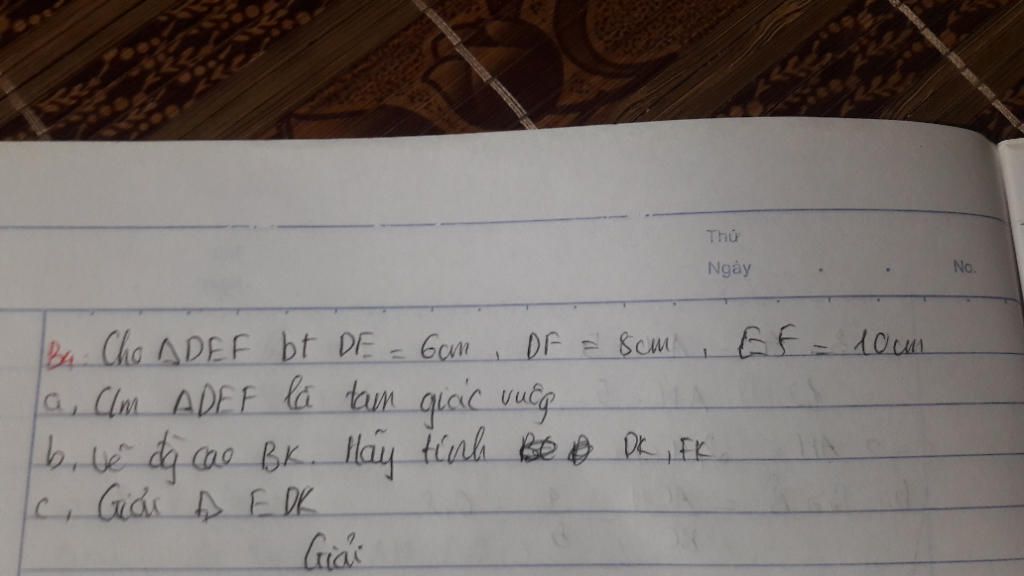 Thứ
Ngày . . No.
B4. Cho ΔDEF bt DE = 6cm, DF = 8cm, EF = 10cm
a, C/m ΔDEF là tam giác vuôg
b, Vẽ đg cao BK. Hãy tính DK, FK
c, Giải Δ EDK
Giải